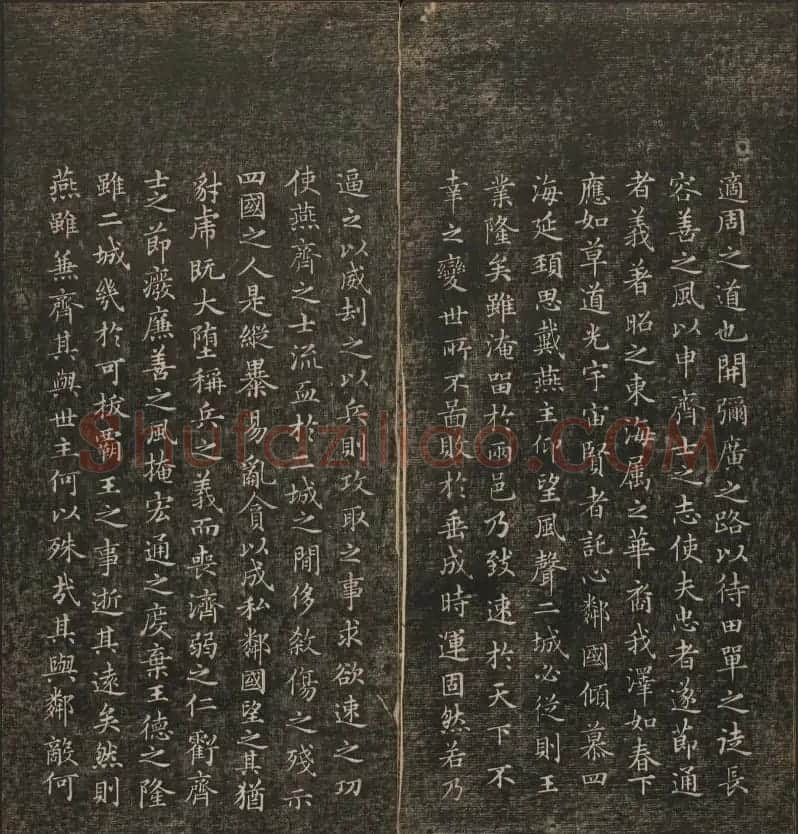 適周之道也開彌廣之路以待田單之徒長
容善之風以申齊士之志使夫忠者遂節通
者義著昭之東海属之華裔我澤如春下
應如草道光宇宙賢者託心鄰國傾慕四
海延頚思戴燕主仰望風聲二城必從則王
業隆矣雖淹留於兩邑乃致速於天下不
幸之變世所不啚敗於垂成時運固然若乃
逼之以威刦之以兵則攻取之事求欲速之功
使燕齊之士流血於二城之閒侈殺傷之殘示
四國之人是縱暴易亂貪以成私鄰國望之其猶
豺虎既大堕稱兵之義而喪濟弱之仁虧齊
士之節癈廉善之風掩宏通之度棄王德之隆
雖二城幾於可拔霸王之事逝其遠矣然則
燕雖兼齊其與世主何以殊哉其與鄰敵何
Shufaziliao.COM